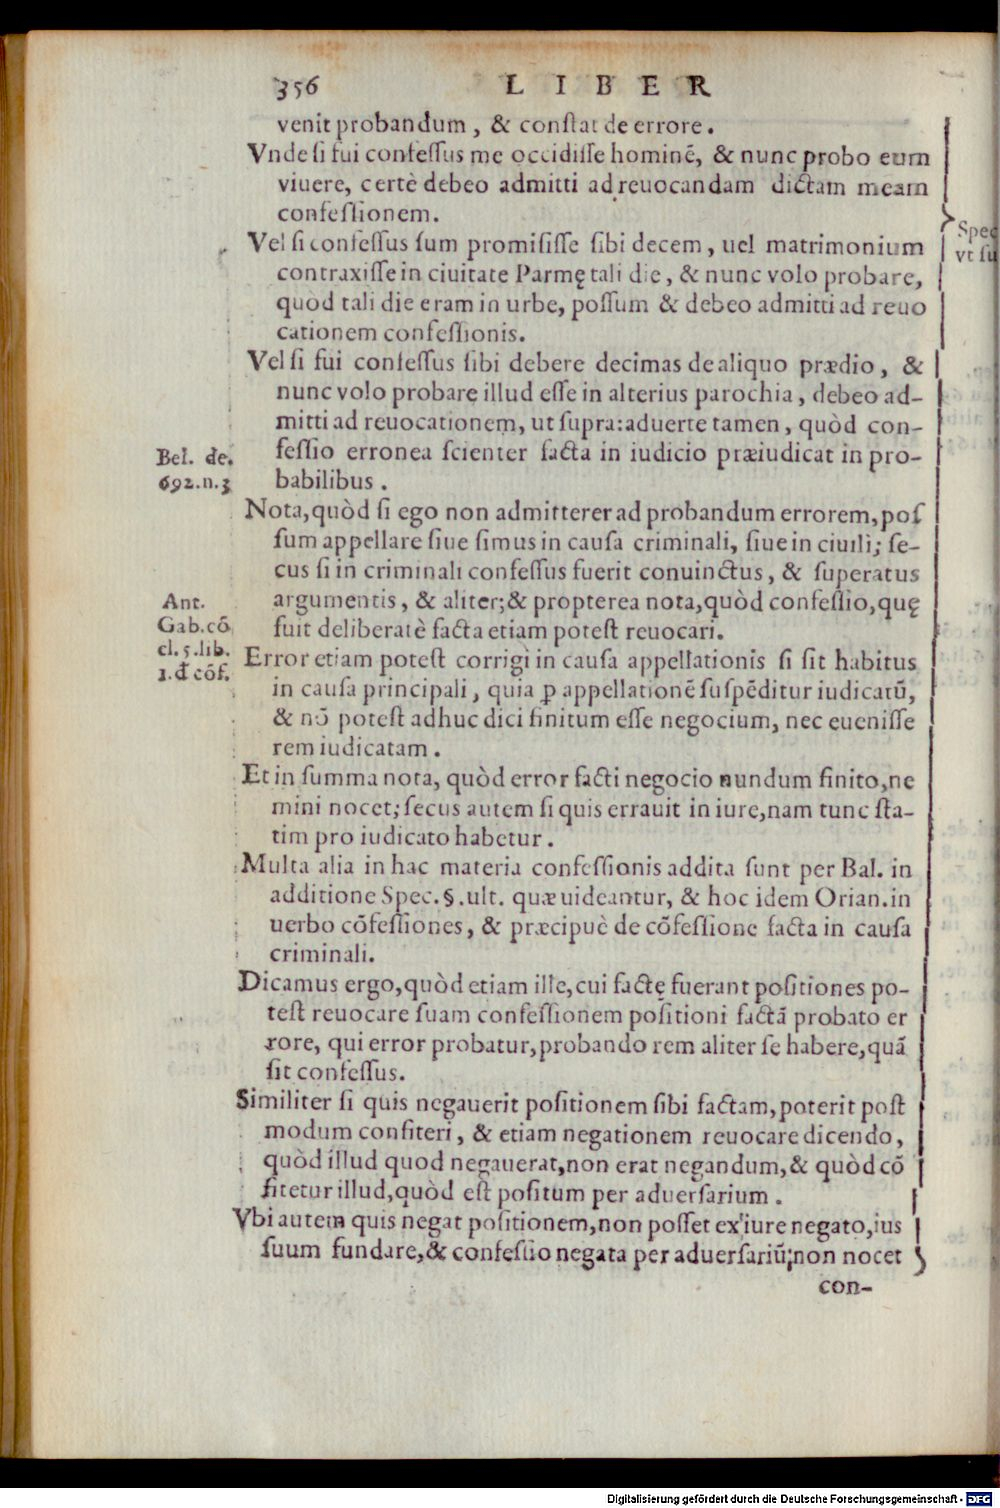 356 LIBER
venit probandum, & conſtat de errore.
Vnde ſi fui confeſſus me occidiſſe hominẽ, & nunc probo eum
viuere, certè debeo admitti ad reuocandam dictam meam
confeſſionem.
Spec
Vel ſi confeſſus ſum promiſiſſe ſibi decem, uel matrimonium
vt ſu
contraxiſſe in ciuitate Parmę tali die, & nunc volo probare,
quòd tali die eram in urbe, poſſum & debeo admitti ad reuo
cationem confeſſionis.
Vel ſi fui confeſſus ſibi debere decimas de aliquo prædio, &
nunc volo probare illud eſſe in alterius parochia, debeo ad-
mitti ad reuocationem, ut ſupra: aduerte tamen, quòd con-
Bel. de.
feſſio erronea ſcienter facta in iudicio præiudicat in pro-
692.n.3
babilibus.
Nota, quòd ſi ego non admitterer ad probandum errorem, poſ
ſum appellare ſiue ſimus in cauſa criminali, ſiue in ciuili; ſe-
cus ſi in criminali confeſſus fuerit conuinctus, & ſuperatus
Ant.
argumentis, & aliter; & propterea nota, quòd confeſſio, quę
Gab.cõ
fuit deliberatè facta etiam poteſt reuocari.
cl.5.lib.
Error etiam poteſt corrigi in cauſa appellationis ſi ſit habitus
1.đ cõf.
in cauſa principali, quia ꝑ appellationẽ ſuſpẽditur iudicatũ,
& nõ poteſt adhuc dici finitum eſſe negocium, nec eueniſſe
rem iudicatam.
Et in ſumma nota, quòd error facti negocio nundum finito, ne
mini nocet; ſecus autem ſi quis errauit in iure, nam tunc ſta-
tim pro iudicato habetur.
Multa alia in hac materia confeſſionis addita ſunt per Bal. in
additione Spec. §. ult. quæ uideantur, & hoc idem Orian. in
uerbo cõfeſſiones, & præcipuè de cõfeſſione facta in cauſa
criminali.
Dicamus ergo, quòd etiam ille, cui factę fuerant poſitiones po-
teſt reuocare ſuam confeſſionem poſitioni factã probato er
rore, qui error probatur, probando rem aliter ſe habere, quã
ſit confeſſus.
Similiter ſi quis negauerit poſitionem ſibi factam, poterit poſt
modum confiteri, & etiam negationem reuocare dicendo,
quòd illud quod negauerat, non erat negandum, & quòd cõ
fitetur illud, quòd eſt poſitum per aduerſarium.
Vbi autem quis negat poſitionem, non poſſet ex iure negato, ius
ſuum fundare, & confeſſio negata per aduerſariũ; non nocet
con-
Digitalisierung gefördert durch die Deutsche Forschungsgemeinschaft - DFG